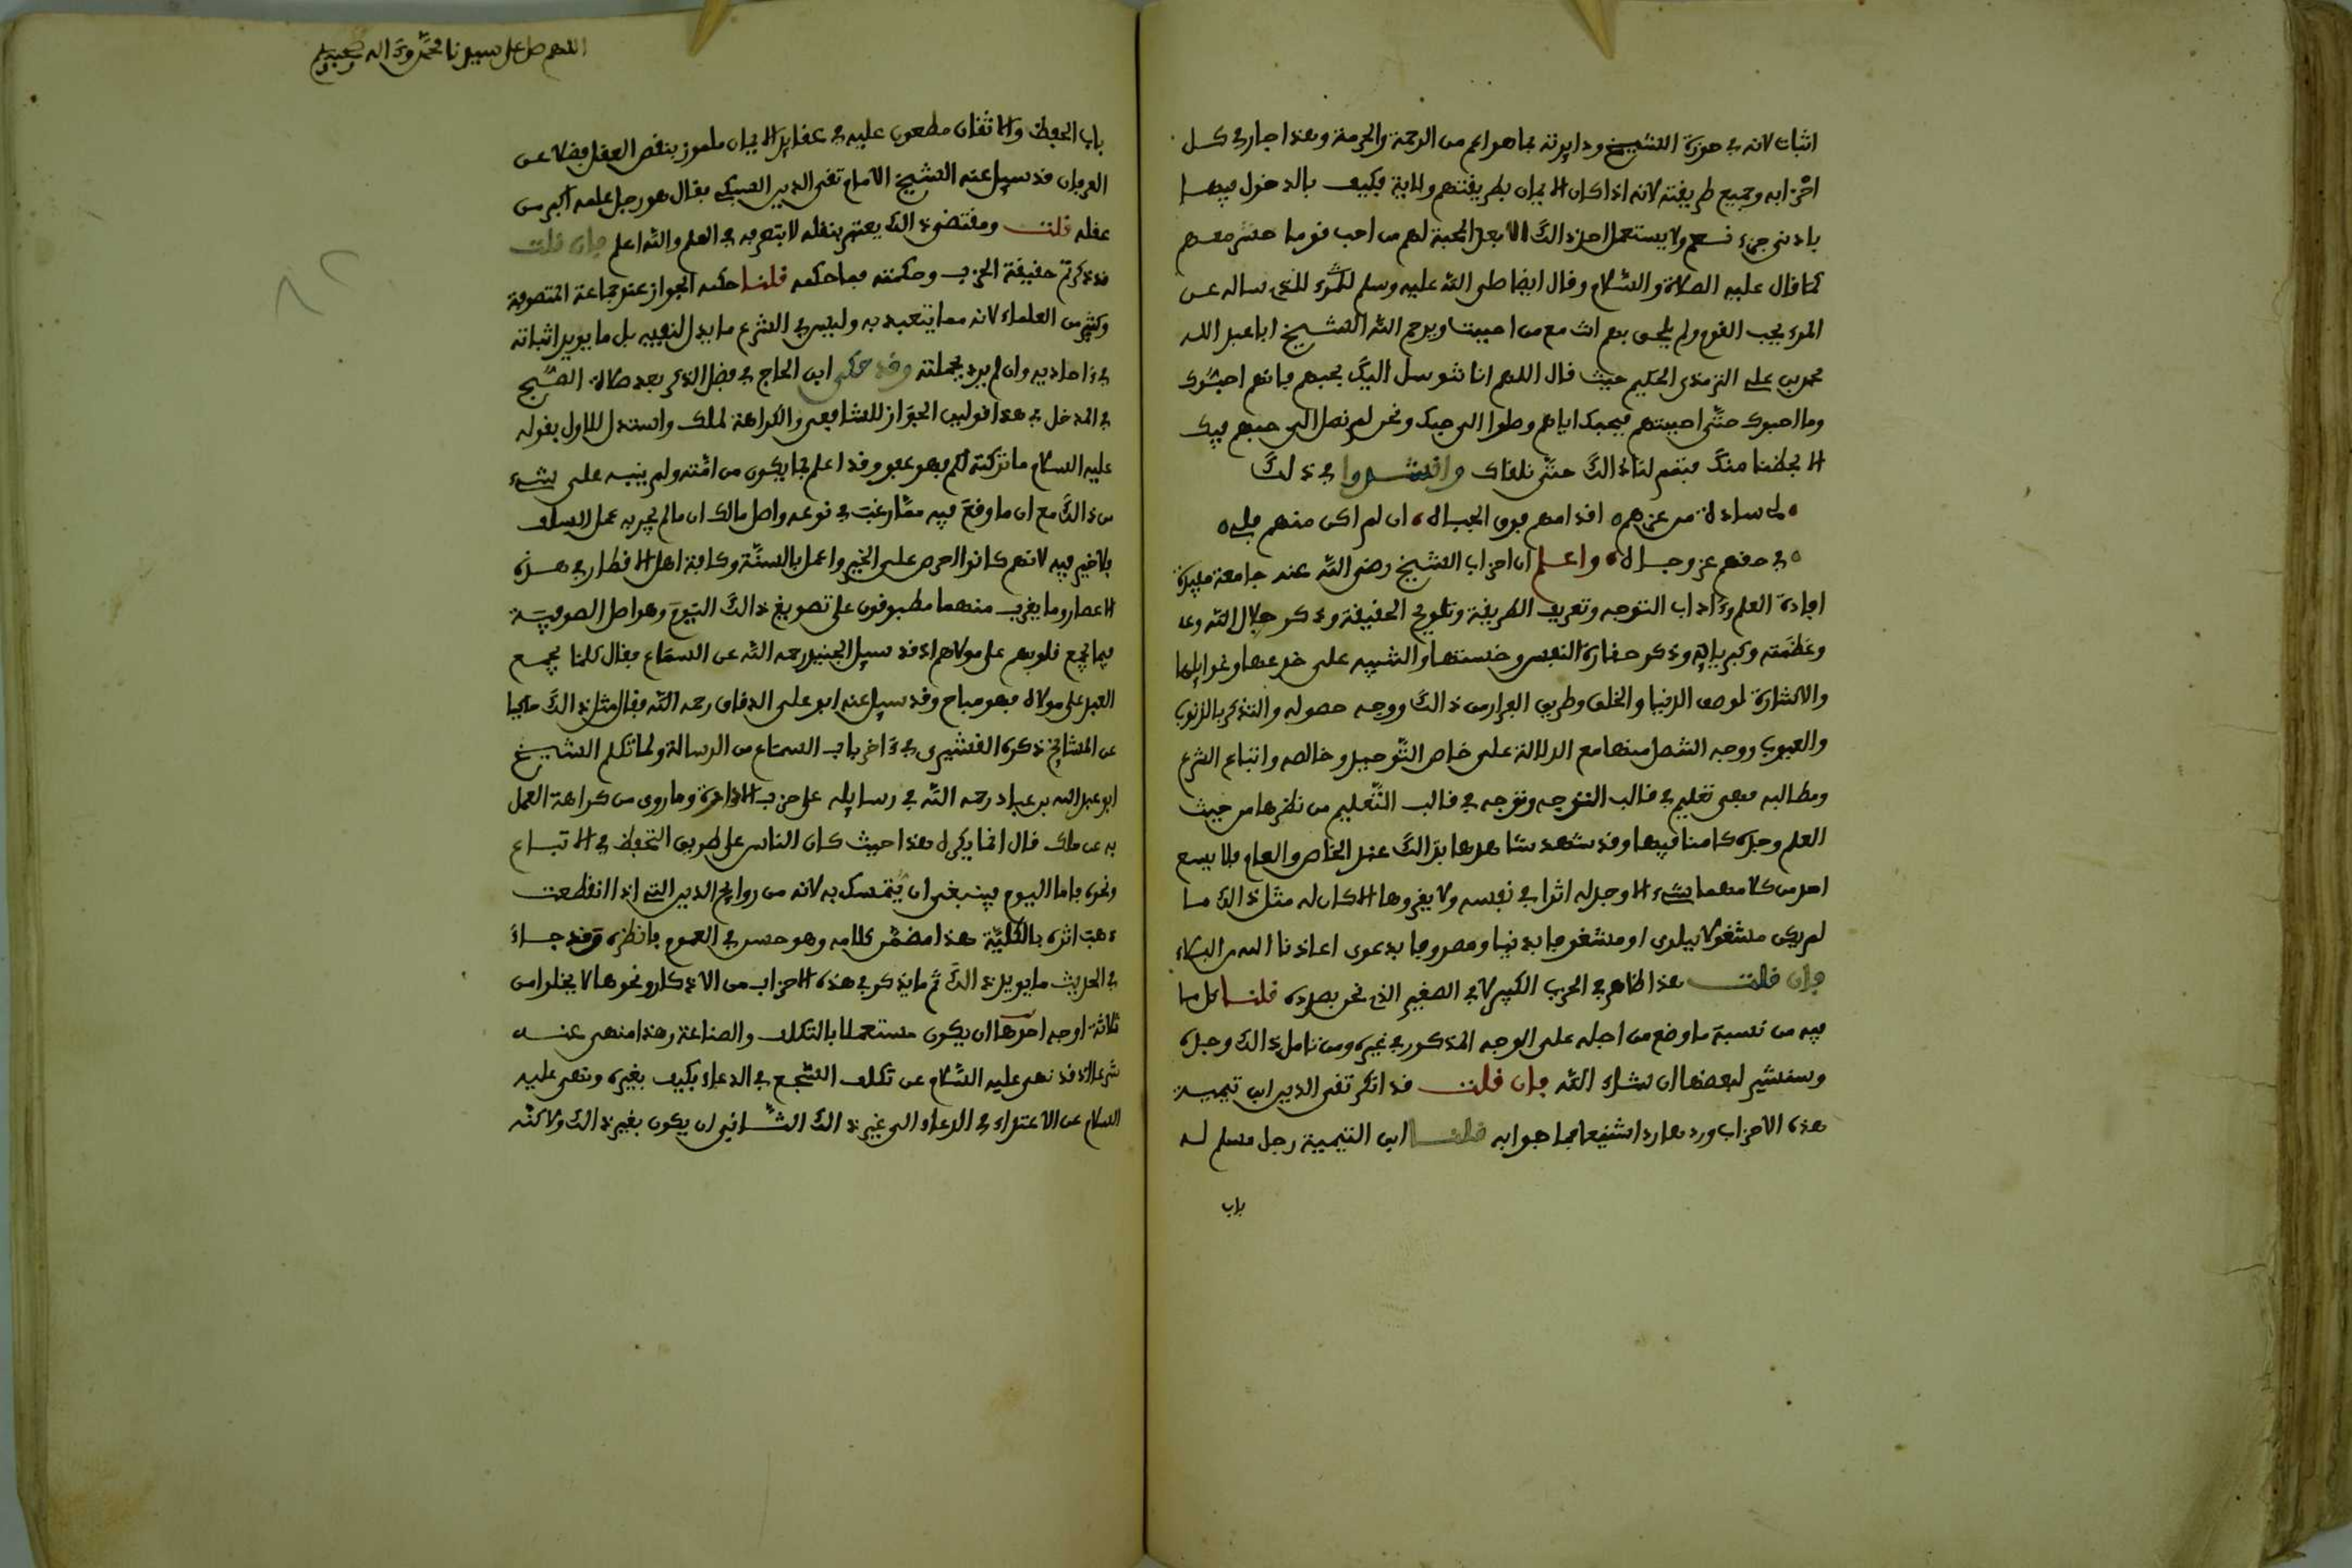 اثبات لانه في حوزة الشيخ ودايرته بما هو اعم من الرحمة والحرمة وهذا جار في كل
احزابه وجميع طريقته لانه اذا كان الايمان بطريقتهم ولاية فكيف بالدخول فيها
بادنى جزء نعم ولا يستعمل احد ذالك الا بعد المحبة لهم من احب قوما حشر معهم
كما قال عليه الصلاة والسلام وقال ايضا صلى الله عليه وسلم للذي ساله عن
المرء يحب القوم ولم يلحق بهم انت مع من احببت ويرحم الله الشيخ ابا عبد الله
محمد بن علي الترمذي الحكيم حيث قال اللهم انا نتوسل اليك بحبهم فانهم احبوك
وما احبوك حتى احببتهم فبحبك اياهم وصلوا الى حبك ونحن لم نصل الى حبهم فيك
الا بحظنا منك فتمم لنا ذالك حتى نلقاك وانشدوا في ذلك
لي سادة من عزهم اقدامهم فوق الجباه ان لم اكن منهم فلي
في حبهم عز وجاه واعلم ان احزاب الشيخ رضي الله عنه جامعة بين
افادة العلم وءاداب التوجه وتعريف الطريقة وتلويح الحقيقة وذكر جلال الله
وعظمته وكبريايه وذكر حقارة النفس وخستها والتنبيه على خدعها وغوايلها
والاشارة لوصف الدنيا والخلق وطريق الفرار من ذالك ووجه حصوله والتذكير بالذنوب
والعيوب ووجه التنصل منها مع الدلالة على خاص التوحيد وخالصه واتباع الشرع
ومطالبه فهي تعليم في قالب التوجه وتوجه في قالب التعليم من نظرها من حيث
العلم وجده كامنا فيها وقد شهد شاهدها بذالك عند الخاص والعام فلا يسمع
احد من كلامها شيء الا وجد له اثرا في نفسه ولا يقروها الا كان له مثل ذالك ما
لم يكن مشغولا ببلوى او مشغوفا بدنيا ومصروفا بدعوى اعاذنا الله من البلاء
فان قلت هذا ظاهر في الحزب الكبير لا في الصغير الذي نحن بصدده قلنا كل ما
فيه من نسبة ما وضع من اجله على الوجه المذكور في غيره ومن تامل ذالك وجده
وسنشير لبعضها ان شاء الله فان قلت قد انكر تقي الدين ابن تيمية
هذه الاحزاب وردها ردا شنيعا فما جوابه قلنا ابن التيمية رجل مسلم له
باب
اللهم صل على سيدنا محمد وءاله وصحبه وسلم
باب الحفظ والاتقان مطعون عليه في عقايد الايمان ملموز بنقص العقل فضلا عن
العرفان قد سيل عنه الشيخ الامام تقي الدين السبكي فقال هو رجل علمه اكبر من
عقله قلت ومقتضى ذالك يعتبر بنقله لا بتصرفه في العلم والله اعلم فان قلت
قد ذكرتم حقيقة الحزب وحكمته فما حكمه قلنا حكمه الجواز عند جماعة المتصوفة
وكثير من العلماء لانه مما يتعبد به وليس في الشرع ما يدل لنفيه بل ما يريد اثباته
في احاديه وان لم يرد بجملته وقد حكى ابن الحاج في فضل الذكر بعد صلاة الصبح
في المدخل في هذا قولين الجواز للشافعي والكراهة لملك واستدل للاول بقوله
عليه السلام ما تركته لكم فهو عفو وقد اعلم بما يكون من امته ولم ينبه على شيء
من ذالك مع ان ما وقع فيه مما رغب في نوعه واصل مالك ان ما لم يجر به عمل السلف
فلا خير فيه لانهم كانوا احرص على الخير واعمل بالسنة وكافة اهل الاقطار في هذه
الاعصار وما يقرب منها مطبوقون على تصويغ ذالك اليوم وهو اصل الصوفية
فيما يجمع قلوبهم على مولاهم اذ قد سيل الجنيد رحمه الله عن السماع فقال كلما يجمع
العبد على مولاه فهو مباح وقد سيل عنه ابو على الدقاق رحمه الله فقال مثل ذالك حاكيا
عن المشايخ ذكره القشيري في ءاخر باب السماع من الرسالة ولما تكلم الشيخ
ابو عبد الله بن عباد رحمه الله في رسايله على حزب الادارة وما روى من كراهة العمل
به عن ملك قال انما يكره هذا حيث كان الناس على طريق التحفظ في الاتباع
ونحوه فاما اليوم فينبغي ان يتمسك به لانه من روايح الدين التي اذا انقطعت
ذهب اثره بالكلية هذا مضمر كلامه وهو حسن في العموم فانظره وقد جاء
في الحديث ما يويد ذالك ثم ما يذكر في هذه الاحزاب من الاذكار ونحوها لا يخلوا من
ثلاثة اوجه احدها ان يكون مستعملا بالتكلف والصناعة وهذا منهى عنه
شرعا اذ قد نهى عليه السلام عن تكلف السجع في الدعاء فكيف بغيره ونهى عليه
السلام عن الاعتداء في الدعاء الى غير ذالك الثاني ان يكون بغير ذالك ولاكنه